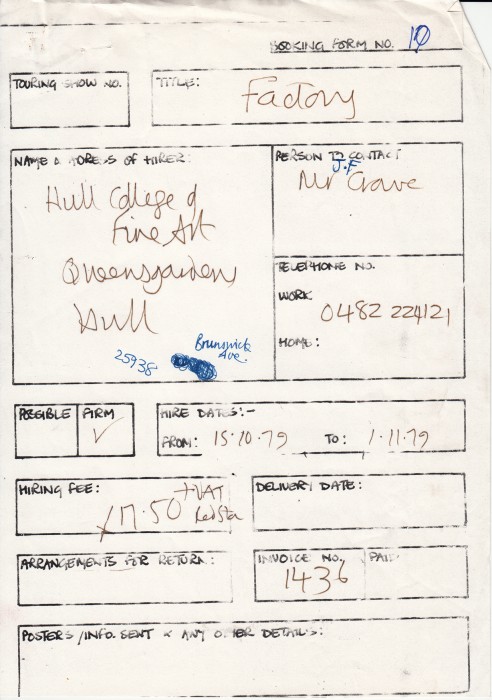 BOOKING FORM NO. 10
TOURING SHOW NO.
TITLE:
Factory
NAME & ADDRESS OF HIRER:
Hull College of
Fine Art
Queensgardens
Hull
25938
Brunswick
Ave.
PERSON TO CONTACT
J.F
Mr Crave
TELEPHONE NO.
WORK
0482 224121
HOME:
POSSIBLE FIRM
✓
HIRE DATES:-
FROM: 15.10.79 TO: 1.11.79
HIRING FEE:
+VAT
£17.50
DELIVERY DATE:
ARRANGEMENTS FOR RETURN:
INVOICE NO. PAID
1436
POSTERS/INFO. SENT & ANY OTHER DETAILS: